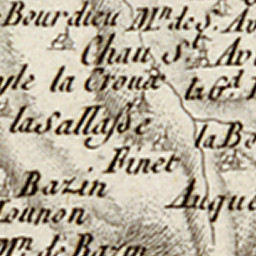 Bourdieu Mn. de St. Av
Chau St. Av
yle la Croux la Gd.
la Sallasse la Bo
Finet
Bazin Augue
Mounon
Mn. de Bazin